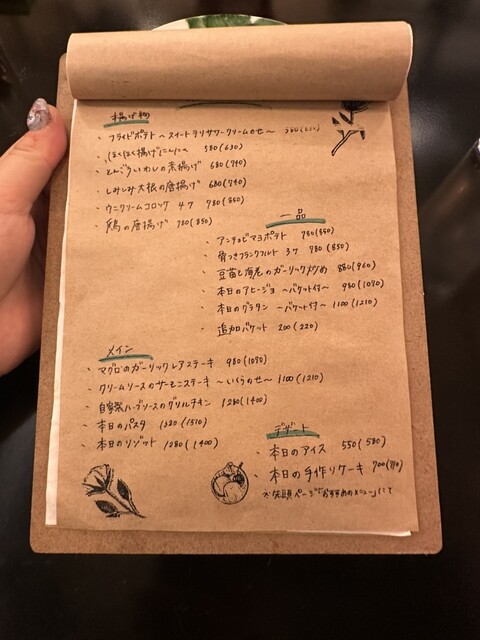 揚げ物
・フライドポテト 〜スイートチリサワークリームのせ〜 580(630)
・ほくほく揚げにんにく 580(630)
・とんごういわしの素揚げ 680(740)
・しみしみ大根の唐揚げ 680(740)
・ウニクリームコロッケ 4ケ 780(850)
・鶏の唐揚げ 780(850)
一品
・アンチョビマヨポテト 780(850)
・骨つきフランクフルト 3ケ 780(850)
・豆苗と海老のガーリック炒め 880(960)
・本日のアヒージョ 〜バケット付〜 980(1070)
・本日のグラタン 〜バケット付〜 1100(1210)
・追加バケット 200(220)
メイン
・マグロのガーリックレアステーキ 980(1070)
・クリームソースのサーモンステーキ 〜いくらのせ〜 1100(1210)
・自家製ハーブソースのグリルチキン 1280(1400)
・本日のパスタ (1510)
・本日のリゾット 1280(1400)
デザート
・本日のアイス 550(580)
・本日の手作りケーキ 700(770)
※先頭ページ「おすすめのメニュー」にて